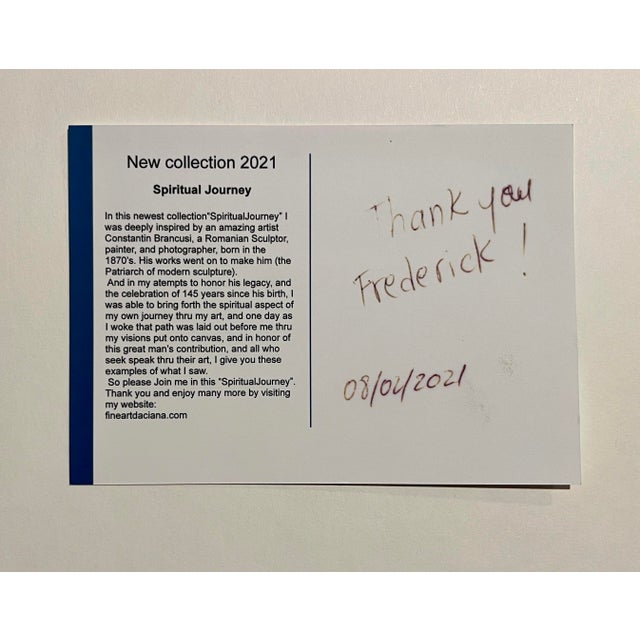 New collection 2021
Spiritual Journey
In this newest collection"SpiritualJourney" I
was deeply inspired by an amazing artist
Constantin Brancusi, a Romanian Sculptor,
painter, and photographer, born in the
1870's. His works went on to make him (the
Patriarch of modern sculpture).
And in my atempts to honor his legacy, and
the celebration of 145 years since his birth, I
was able to bring forth the spiritual aspect of
my own journey thru my art, and one day as
I woke that path was laid out before me thru
my visions put onto canvas, and in honor of
this great man's contribution, and all who
seek speak thru their art, I give you these
examples of what I saw.
So please Join me in this "SpiritualJourney".
Thank you and enjoy many more by visiting
my website:
fineartdaciana.com
Thank you
Frederick !
08/02/2021